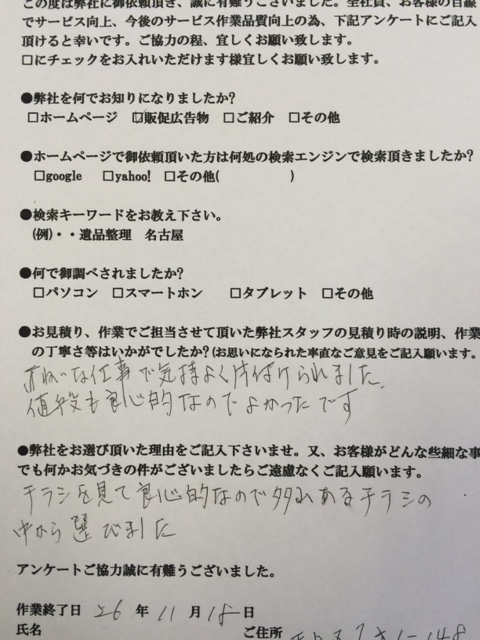 この度は弊社に御依頼頂き、誠に有難うございました。全社員、お客様の目線
でサービス向上、今後のサービス作業品質向上の為、下記アンケートにご記入
頂けると幸いです。ご協力の程、宜しくお願い致します。
□にチェックをお入れいただけます様宜しくお願い致します。
●弊社を何でお知りになりましたか?
□ホームページ □販促広告物 □ご紹介 □その他
●ホームページで御依頼頂いた方は何処の検索エンジンで検索頂きましたか?
□google □yahoo! □その他( )
●検索キーワードをお教え下さい。
(例)・・遺品整理 名古屋
●何で御調べされましたか?
□パソコン □スマートホン □タブレット □その他
●お見積り、作業でご担当させて頂いた弊社スタッフの見積り時の説明、作業
の丁寧さ等はいかがでしたか?(お思いになられた事直なご意見をご記入願います。
きれいな仕事で気持よく片付けられました
値段も良心的なのでよかったです
●弊社をお選び頂いた理由をご記入下さいませ。又、お客様がどんな些細な事
でも何かお気づきの件がございましたらご遠慮なくご記入願います。
チラシを見て良心的なので多数あるチラシの
中から選びました
アンケートご協力誠に有難うございました。
作業終了日 26 年 11 月 18 日
氏名 ご住所